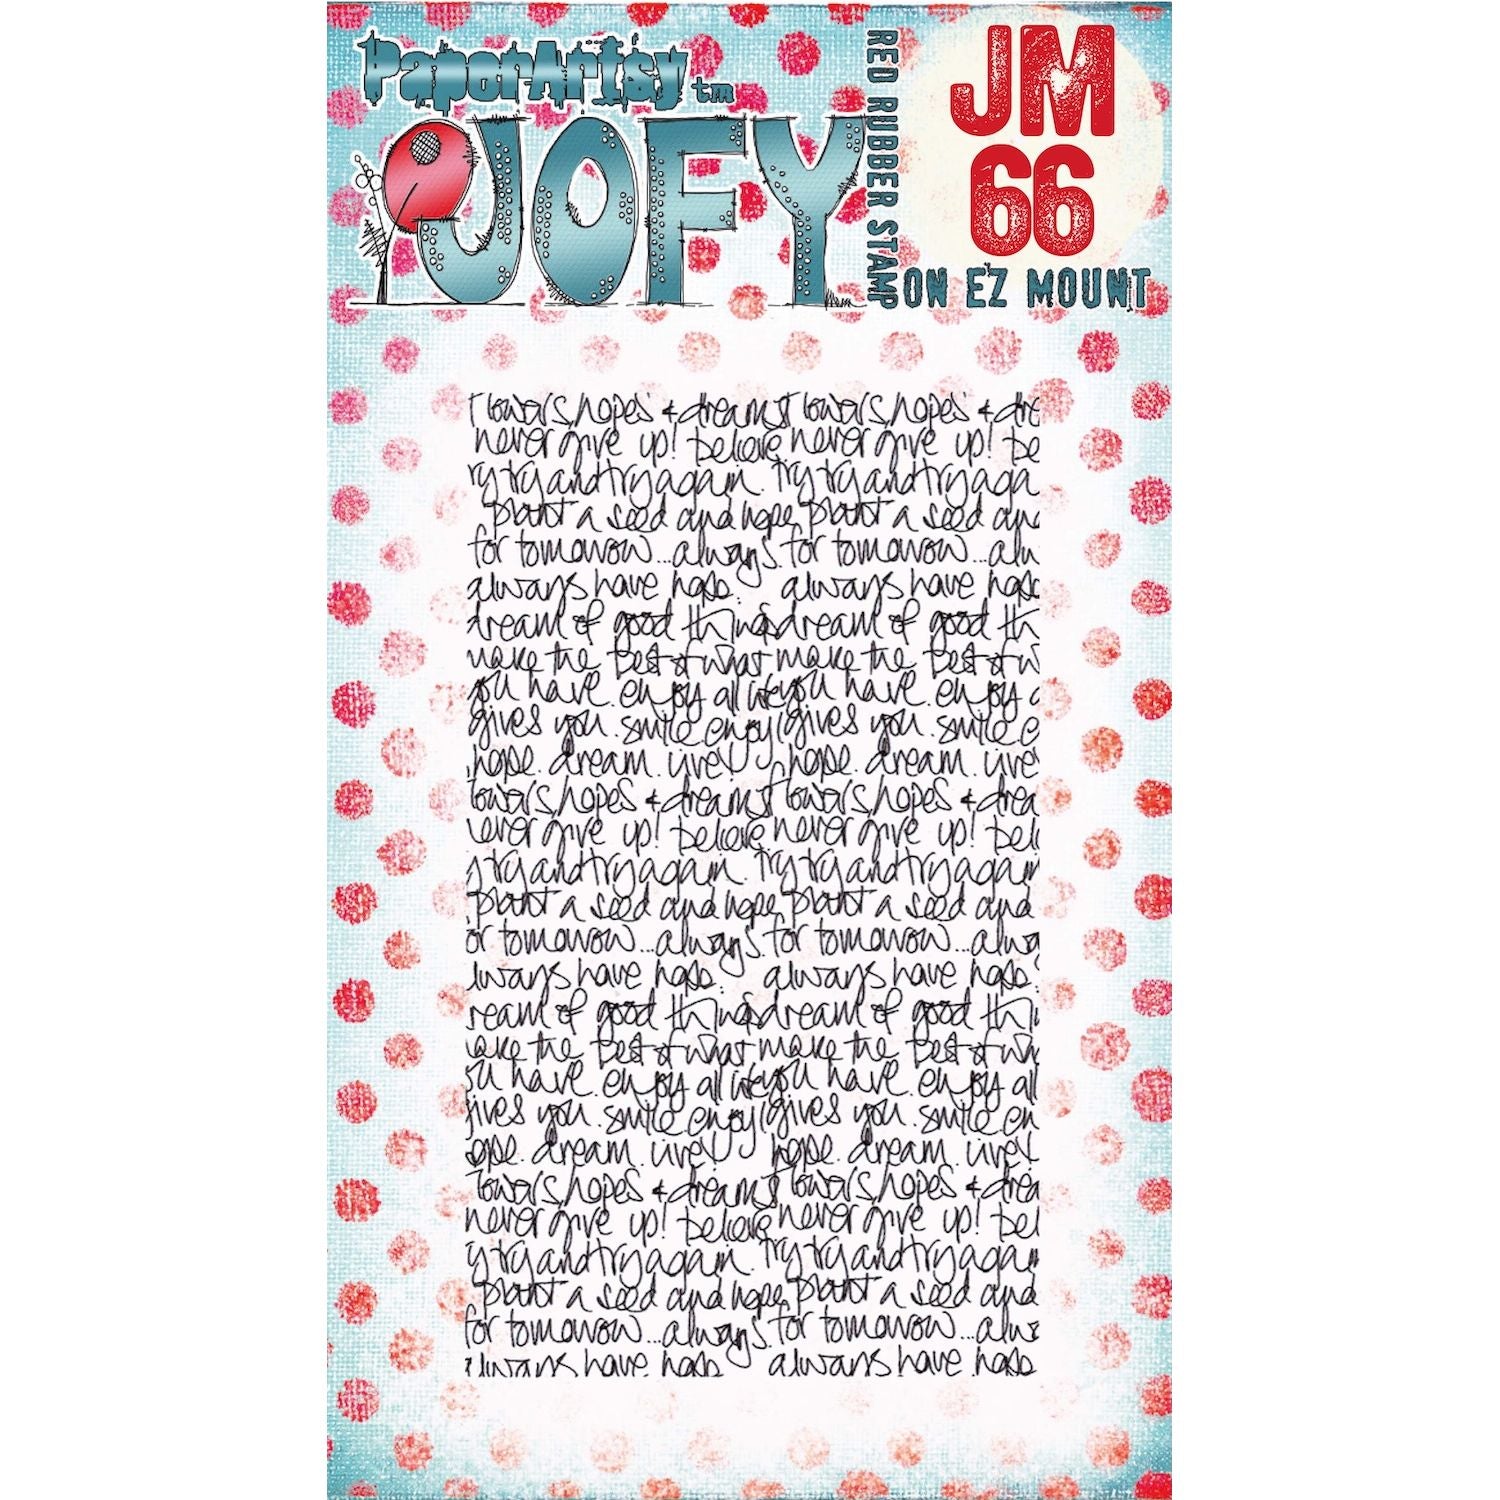 PaperArtsy tm
JOFY
RED RUBBER STAMP
ON EZ MOUNT
JM
66
flowers, hopes & dreams flowers, hopes & dre
never give up! believe never give up! be
ry try and try again. Try try and try aga
plant a seed and hope plant a seed and
for tomorrow...always. for tomorrow...alw
always have hope. always have hope
dream of good things dream of good th
make the best of what make the best of w
you have. enjoy all life you have. enjoy
gives you. smile enjoy gives you. smile e
hope. dream. live! hope. dream. live
flowers, hopes & dreams flowers, hopes & drea
never give up! believe never give up! bel
y try and try again. Try try and try again
plant a seed and hope plant a seed and
or tomorrow...always. for tomorrow...alwa
lways have hope. always have hope.
ream of good things dream of good thi
make the best of what make the best of wh
ou have. enjoy all life you have. enjoy all
gives you. smile enjoy gives you. smile en
ope. dream. live! hope. dream. live!
flowers, hopes & dreams flowers, hopes & drea
never give up! believe never give up! bel
y try and try again. Try try and try again
plant a seed and hope plant a seed and
for tomorrow...always. for tomorrow...alwa
always have hope always have hope